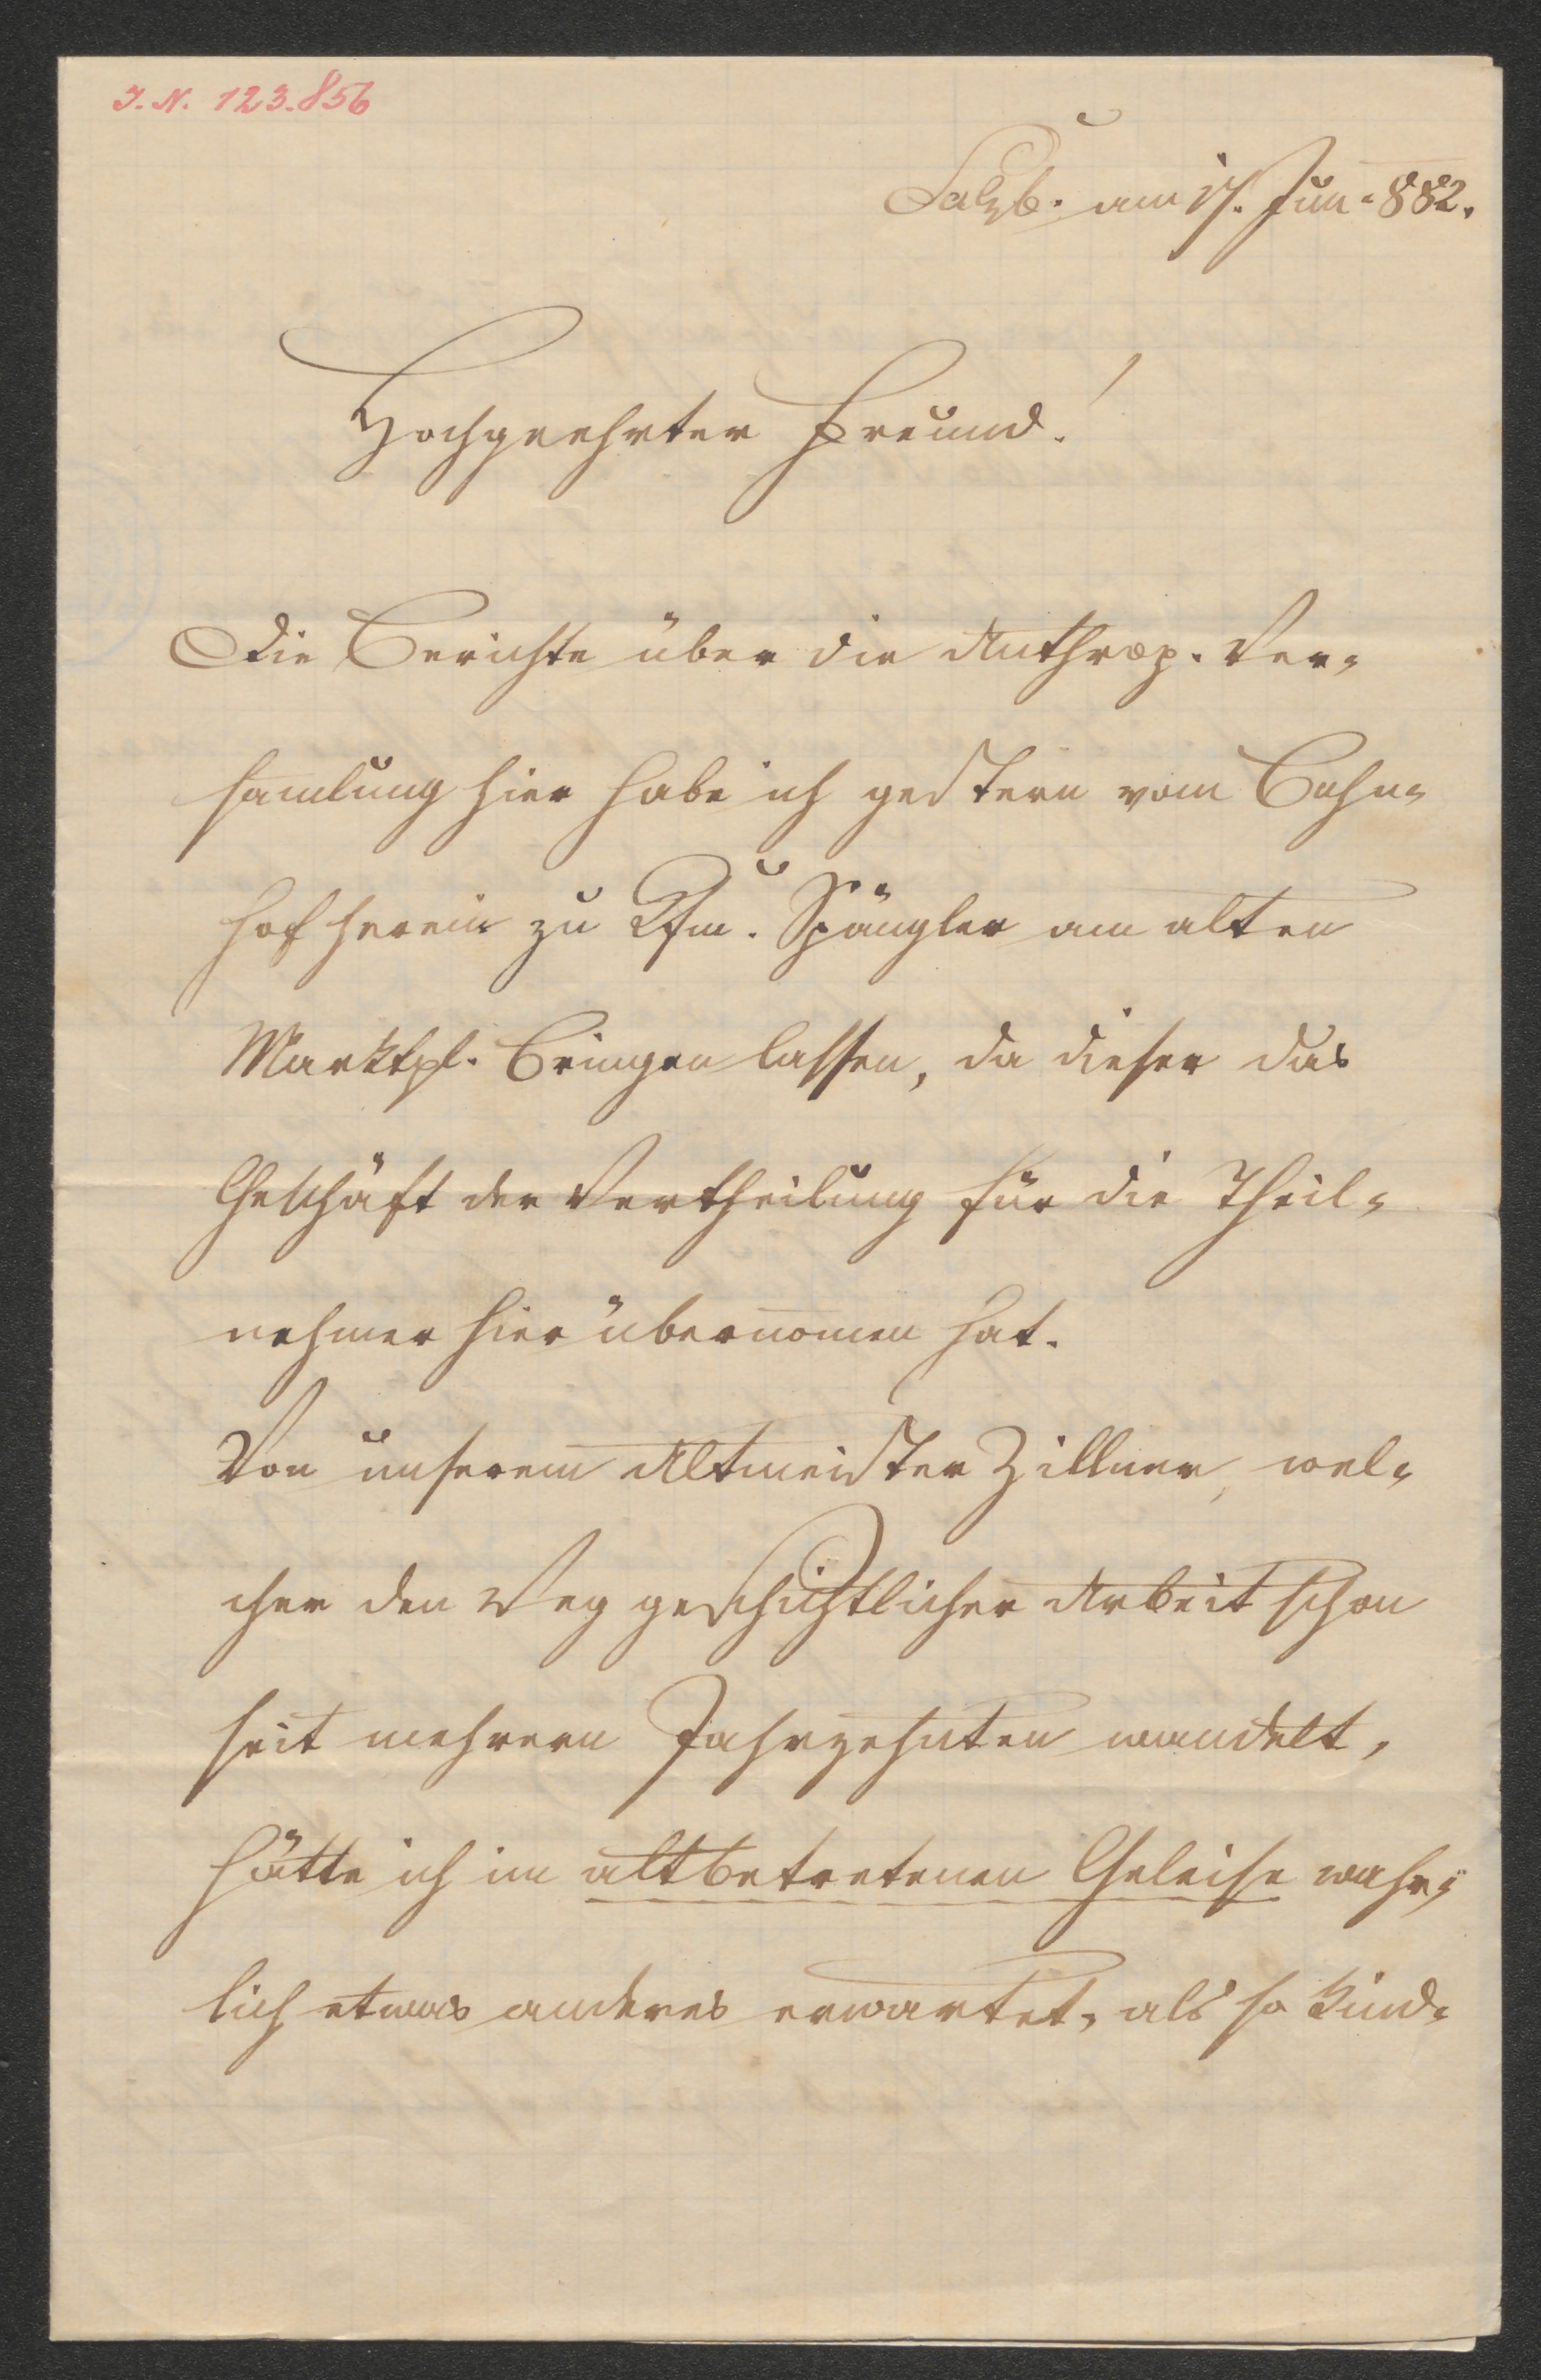 I. N. 123.856
Salzb. am 17. Jun. 882.
Hochgeehrter Freund!
Die Berichte über die Anthrop. Ver-
samlung hier habe ich gestern vom Bahn-
hof herein zu Kfm. Spängler am alten
Marktpl. bringen lassen, da dieser das
Geschäft der Vertheilung für die Theil-
nehmer hier übernomen hat.
Von unserem Altmeister Zillner, wel-
cher den Weg geschichtlicher Arbeit schon
seit mehrern Jahrzehnten wandelt,
hätte ich im altbetretenen Geleise wahr-
lich etwas anderes erwartet, als so kind-